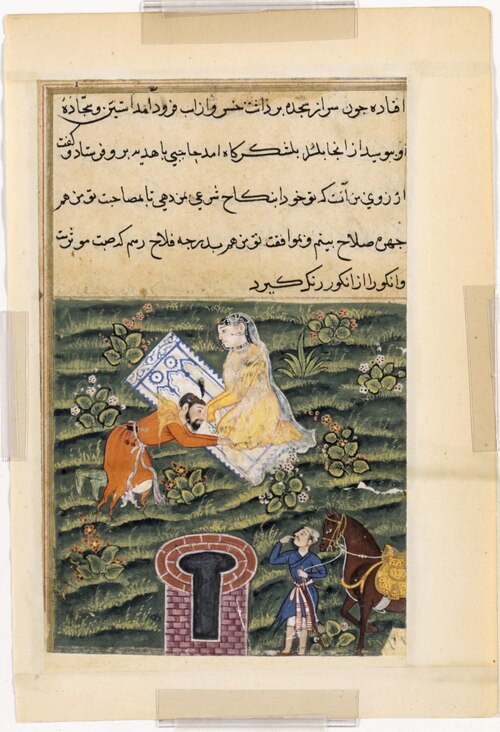 افتاده جون سر از سجده برداشت خسرو از اسب فرود آمد آستین و سجّادهٔ
او ببوسید از انجا بلشکرکاه امد حاجبی با هدیه برو فرستاد و کفت
ارزوی من آنست که تو خود را بنکاح شرعی بمن دهی تا بمصاحبت تو من هم
جهرهٔ صلاح بینم و بموافقت تو من هم بدرجه فلاح رسم که صحبت موثرست
وانکور از انکور رنک کیرد